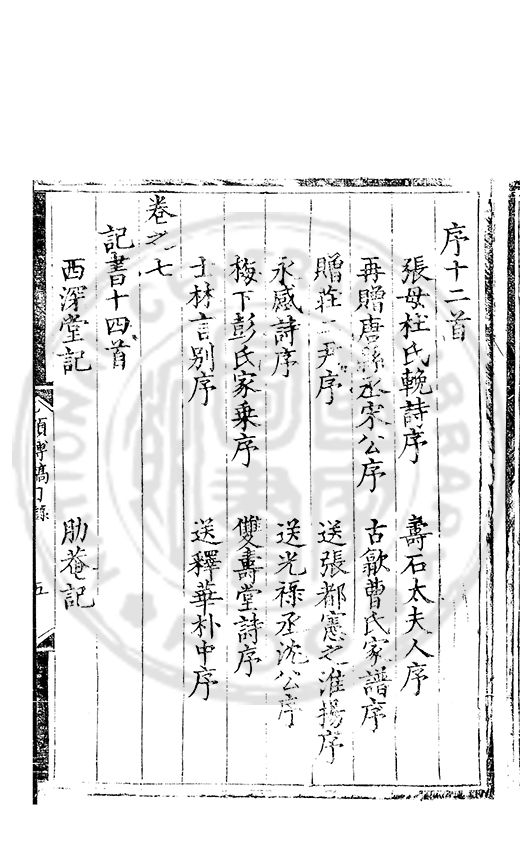 序十二首
張母杜氏輓詩序　壽石太夫人序
再贈唐縣丞宋公序　古歙曹氏家譜序
贈莊二尹序　送張都憲之淮揚序
永感詩序　送光祿丞沈公序
梅下彭氏家乘序　雙壽堂詩序
士林言別序　送釋華朴中序
卷之七
記書十四首
西深堂記　肋菴記
頎摶稿目錄　五